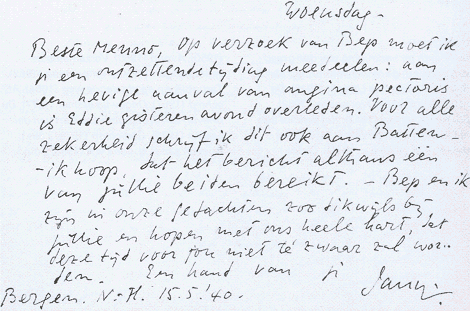 Woensdag -
Beste Menno, Op verzoek van Bep moet ik
je een ontzettende tijding meedeelen: aan
een hevige aanval van angina pectoris
is Eddie gisteren avond overleden. Voor alle
zekerheid schrijf ik dit ook aan Batten-
-ik hoop, dat het bericht althans één
van jullie beiden bereikt. - Bep en ik
zijn in onze gedachten zoo dikwijls bij
jullie en hopen met ons heele hart, dat
deze tijd voor jou niet té zwaar zal wor-
den. Een hand van je
Bergen. N-H. 15.5.'40. Jany.